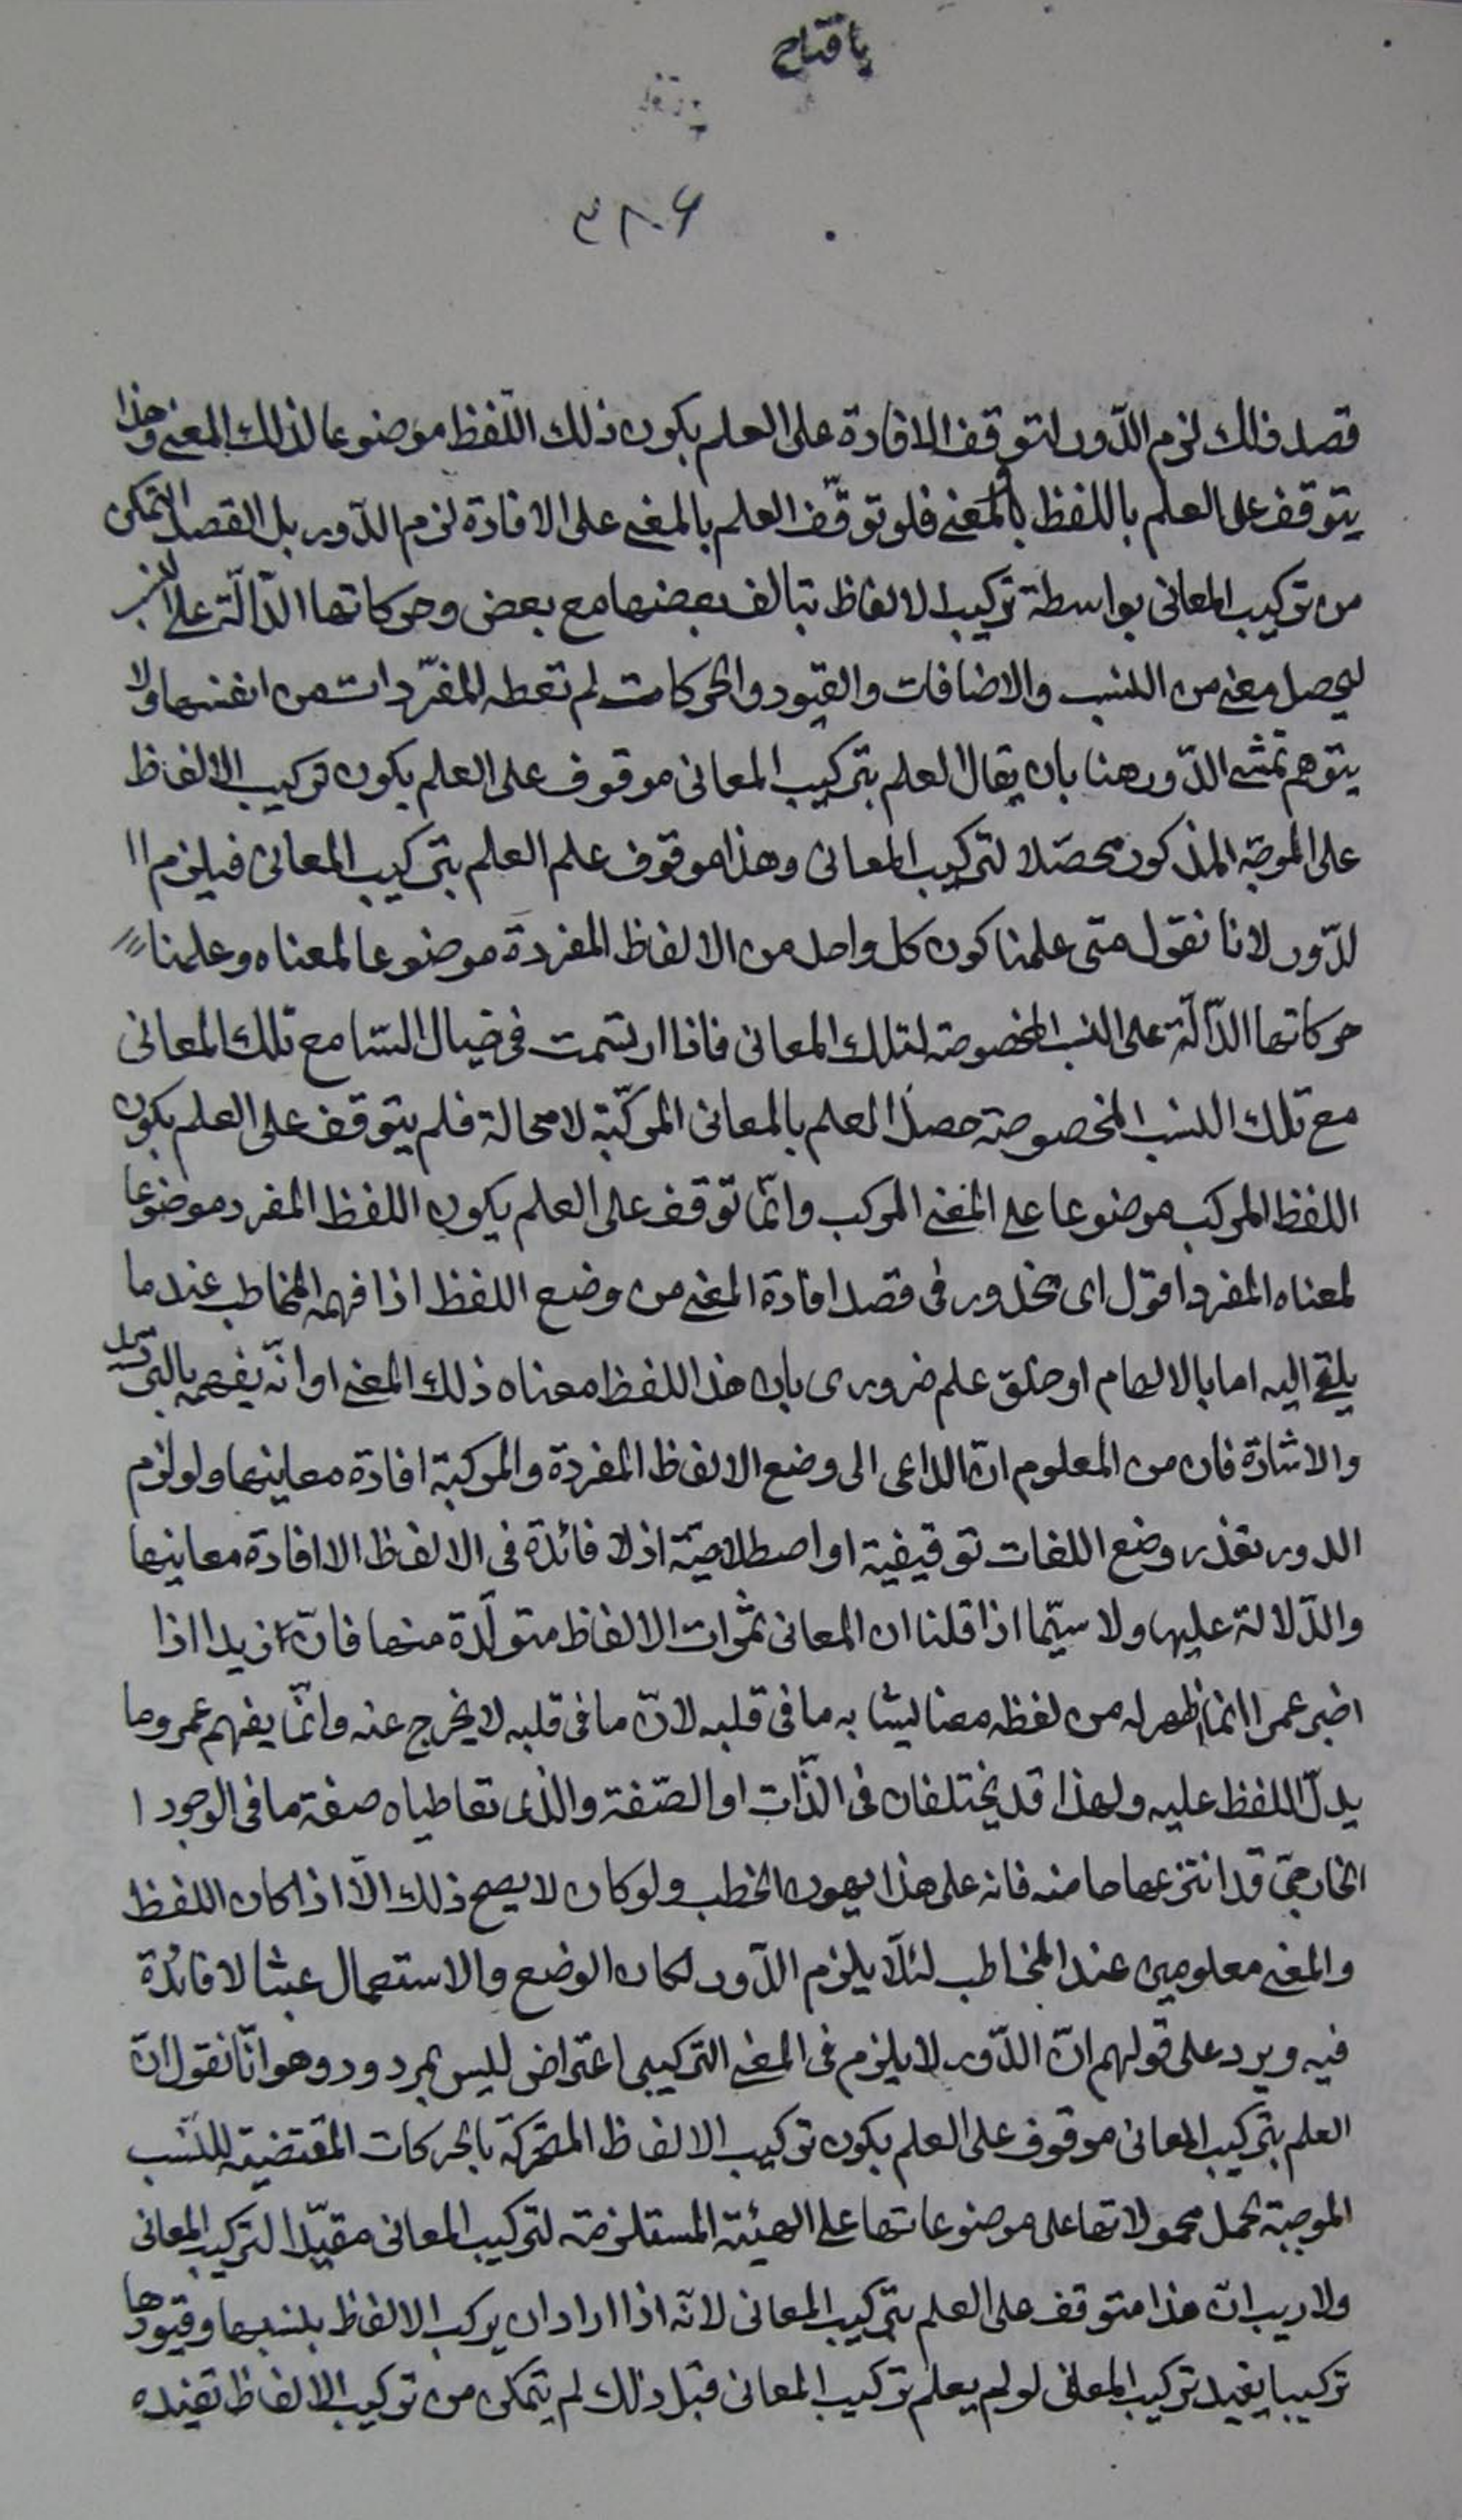 يا فتاح
٣٨٠۶
قصد ذلك لزم الدّور لتوقف الافادة على العلم بكون ذلك اللّفظ موضوعا لذلك المعنى وهذا
يتوقف على العلم باللفظ والمعنى فلو توقّف العلم بالمعنى على الافادة لزم الدّور بل القصد التمكن
من تركيب المعانى بواسطة تركيب الالفاظ بتالف بعضها مع بعض وحركاتها الدّالّة على النسب
ليحصل معنى من النسب والاضافات والقيود والحركات لم تعطه المفرّدات من انفسها ولا
يتوهّم تمشّى الدّور هنا بان يقال العلم بتركيب المعانى موقوف على العلم بكون تركيب الالفاظ
على الموجه المذكور محصّلا لتركيب المعانى وهذا موقوف علم العلم بتركيب المعانى فيلزم ا
لدّور لانا نقول متى علمنا كون كل واحد من الالفاظ المفردة موضوعا لمعناه وعلمنا
حركاتها الدّالّة على النسب المخصوصة لتلك المعانى فاذا ارتسمت فى خيال السّامع تلك المعانى
مع تلك النسب المخصوصة حصل العلم بالمعانى المركّبة لا محالة فلم يتوقف على العلم بكون
اللفظ المركب موضوعا على المعنى المركب وانّما توقف على العلم بكون اللفظ المفرد موضوعا
لمعناه المفرد اقول اى محذور فى قصد افادة المعنى من وضع اللفظ اذا فهمه المخاطب عندما
يلقى اليه اما بالالهام او خلق علم ضرورى بان هذا اللفظ معناه ذلك المعنى او انّه يفهمه بالترتيل
والاشارة فان من المعلوم انّ الداعى الى وضع الالفاظ المفردة والمركبة افادة معانيها ولو لزم
الدور تعذر وضع اللغات توقيفية او اصطلاحيّة اذ لا فائدة فى الالفاظ الا افادة معانيها
والدّلالة عليها ولا سيّما اذا قلنا ان المعانى ثمرات الالفاظ متولّدة منها فانّ زيدا اذا
اخبر عمرا انما ظهر له من لفظه معنا يشابه ما فى قلبه لانّ ما فى قلبه لا يخرج عنه وانّما يفهم عمرو ما
يدلّ اللفظ عليه ولهذا قد يختلفان فى الذّات او الصّفة والذى تعاطياه صفة ما فى الوجود ا
لخارجىّ قد انتزعاها منه فانه على هذا يهون الخطب ولو كان لا يصح ذلك الّا اذا كان اللفظ
والمعنى معلومين عند المخاطب لئلّا يلزم الدّور لكان الوضع والاستعمال عبثا لا فائدة
فيه ويرد على قولهم انّ الدّور لا يلزم فى المعنى التركيبى اعتراض ليس بمردود وهو انّا نقول انّ
العلم بتركيب المعانى موقوف على العلم بكون تركيب الالفاظ المتحركة بالحركات المقتضية للنّسب
الموجبة لحمل محمولاتها على موضوعاتها على الهيئة المستلزمة لتركيب المعانى مقيّدا لتركيب المعانى
ولا ريب انّ هذا متوقف على العلم بتركيب المعانى لانّه اذا اراد ان يركب الالفاظ بنسبها وقيودها
تركيبا يفيد تركيب المعانى لو لم يعلم تركيب المعانى قبل ذلك لم يتمكن من تركيب الالفاظ تفيده